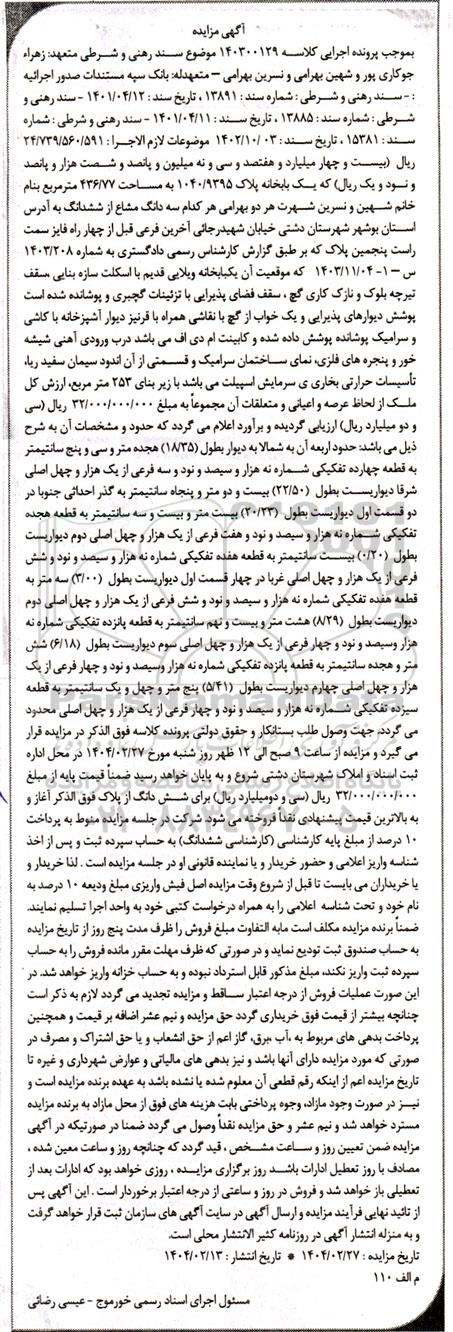 آگهی مزایده
بموجب پرونده اجرایی کلاسه ۱۴۰۳۰۰۱۲۹ موضوع سند رهنی و شرطی متعهد: زهراء
جوکاری پور و شهین بهرامی و نسرین بهرامی – متعهدله: بانک سپه مستندات صدور اجرائیه
: - سند رهنی و شرطی : شماره سند : ۱۳۸۹۱ ، تاریخ سند : ۱۴۰۱/۰۴/۱۲ - سند رهنی و
شرطی : شماره سند : ۱۳۸۸۵ ، تاریخ سند : ۱۴۰۱/۰۴/۱۱ - سند رهنی و شرطی : شماره
سند : ۱۵۳۸۱ ، تاریخ سند : ۱۴۰۲/۱۰/۰۳ موضوعات لازم الاجرا : ۲۴/۷۳۹/۵۶۰/۵۹۱
ریال (بیست و چهار میلیارد و هفتصد و سی و نه میلیون و پانصد و شصت هزار و پانصد
و نود و یک ریال) که یک بابخانه پلاک ۱۰۴۰/۹۳۹۵ به مساحت ۴۳۶/۷۷ مترمربع بنام
خانم شهین و نسرین شهرت هر دو بهرامی هر کدام سه دانگ مشاع از ششدانگ به آدرس
استان بوشهر شهرستان دشتی خیابان شهیدرجائی آخرین فرعی قبل از چهار راه فایز سمت
راست پنجمین پلاک که بر طبق گزارش کارشناس رسمی دادگستری به شماره ۱۴۰۳/۲۰۸
س – ۱- ۱۴۰۳/۱۱/۰۴ که موقعیت آن یکبابخانه ویلایی قدیم با اسکلت سازه بنایی ،سقف
تیرچه بلوک و نازک کاری گچ ، سقف فضای پذیرایی با تزئینات گچبری و پوشانده شده است
پوشش دیوارهای پذیرایی و یک خواب از گچ با نقاشی همراه با قرنیز دیوار آشپزخانه با کاشی
و سرامیک پوشانده پوشش داده شده و کابینت ام دی اف می باشد درب ورودی آهنی شیشه
خور و پنجره های فلزی، نمای ساختمان سرامیک و قسمتی از آن اندود سیمان سفید ریا،
تأسیسات حرارتی بخاری ی سرمایش اسپیلت می باشد با زیر بنای ۲۵۳ متر مربع، ارزش کل
ملک از لحاظ عرصه و اعیانی و متعلقات آن مجموعاً به مبلغ ۳۲/۰۰۰/۰۰۰/۰۰۰ ریال (سی
و دو میلیارد ریال) ارزیابی گردیده و برآورد اعلام می گردد که حدود و مشخصات آن به شرح
ذیل می باشد: حدود اربعه آن به شمالا به دیوار بطول (۱۸/۳۵) هجده متر و سی و پنج سانتیمتر
به قطعه چهارده تفکیکی شماره نه هزار و سیصد و نود و سه فرعی از یک هزار و چهل اصلی
شرقا دیواریست بطول (۲۲/۵۰) بیست و دو متر و پنجاه سانتیمتر به گذر احداثی جنوبا در
دو قسمت اول دیواریست بطول (۲۰/۲۳) بیست متر و بیست و سه سانتیمتر به قطعه هجده
تفکیکی شماره نه هزار و سیصد و نود و هفت فرعی از یک هزار و چهل اصلی دوم دیواریست
بطول (۰/۲۰) بیست سانتیمتر به قطعه هفده تفکیکی شماره نه هزار و سیصد و نود و شش
فرعی از یک هزار و چهل اصلی غربا در چهار قسمت اول دیواریست بطول (۳/۰۰) سه متر به
قطعه هفده تفکیکی شماره نه هزار و سیصد و نود و شش فرعی از یک هزار و چهل اصلی دوم
دیواریست بطول (۸/۲۹) هشت متر و بیست و نهم سانتیمتر به قطعه پانزده تفکیکی شماره نه
هزار وسیصد و نود و چهار فرعی از یک هزار و چهل اصلی سوم دیواریست بطول (۶/۱۸) شش
متر و هجده سانتیمتر به قطعه پانزده تفکیکی شماره نه هزار وسیصد و نود و چهار فرعی از یک
هزار و چهل اصلی چهارم دیواریست بطول (۵/۴۱) پنج متر و چهل و یک سانتیمتر به قطعه
سیزده تفکیکی شماره نه هزار و سیصد و نود و چهار فرعی از یک هزار و چهل اصلی محدود
می گردد، جهت وصول طلب بستانکار و حقوق دولتی پرونده کلاسه فوق الذکر در مزایده قرار
می گیرد و مزایده از ساعت ۹ صبح الی ۱۲ ظهر روز شنبه مورخ ۱۴۰۴/۰۲/۲۷ در محل اداره
ثبت اسناد و املاک شهرستان دشتی شروع و به پایان خواهد رسید ضمناً قیمت پایه از مبلغ
۳۲/۰۰۰/۰۰۰/۰۰۰ ریال (سی و دومیلیارد ریال) برای شش دانگ از پلاک فوق الذکر آغاز و
به بالاترین قیمت پیشنهادی نقداً فروخته می شود. شرکت در جلسه مزایده منوط به پرداخت
۱۰ درصد از مبلغ پایه کارشناسی (کارشناسی ششدانگ) به حساب سپرده ثبت و پس از اخذ
شناسه واریز اعلامی و حضور خریدار و یا نماینده قانونی او در جلسه مزایده است . لذا خریدار و
یا خریداران می بایست تا قبل از شروع وقت مزایده اصل فیش واریزی مبلغ ودیعه ۱۰ درصد به
نام خود و تحت شناسه اعلامی را به همراه درخواست کتبی خود به واحد اجرا تسلیم نمایند.
ضمناً برنده مزایده مکلف است مابه التفاوت مبلغ فروش را ظرف مدت پنج روز از تاریخ مزایده
به حساب صندوق ثبت تودیع نماید و در صورتی که ظرف مهلت مقرر مانده فروش را به حساب
سپرده ثبت واریز نکند، مبلغ مذکور قابل استرداد نبوده و به حساب خزانه واریز خواهد شد. در
این صورت عملیات فروش از درجه اعتبار ساقط و مزایده تجدید می گردد لازم به ذکر است
چنانچه بیشتر از قیمت فوق خریداری گردد حق مزایده و نیم عشر اضافه بر قیمت و همچنین
پرداخت بدهی های مربوط به ،آب ،برق، گاز اعم از حق انشعاب و یا حق اشتراک و مصرف در
صورتی که مورد مزایده دارای آنها باشد و نیز بدهی های مالیاتی و عوارض شهرداری و غیره تا
تاریخ مزایده اعم از اینکه رقم قطعی آن معلوم شده یا نشده باشد به عهده برنده مزایده است و
نیز در صورت وجود مازاد، وجوه پرداختی بابت هزینه های فوق از محل مازاد به برنده مزایده
مسترد خواهد شد و نیم عشر و حق مزایده نقداً وصول می گردد ضمنا در صورتیکه در آگهی
مزایده ضمن تعیین روز و ساعت مشخص ، قید گردد که چنانچه روز و ساعت معین شده ،
مصادف با روز تعطیل ادارات باشد روز برگزاری مزایده ، روزی خواهد بود که ادارات بعد از
تعطیلی باز خواهد شد و فروش در روز و ساعتی از درجه اعتبار برخوردار است . این آگهی پس
از تائید نهایی فرآیند مزایده و ارسال آگهی در سایت آگهی های سازمان ثبت قرار خواهد گرفت
و به منزله انتشار آگهی در روزنامه کثیر الانتشار محلی است.
تاریخ مزایده : ۱۴۰۴/۰۲/۲۷ * تاریخ انتشار : ۱۴۰۴/۰۲/۱۳
م الف ۱۱۰
مسئول اجرای اسناد رسمی خورموج - عیسی رضائی